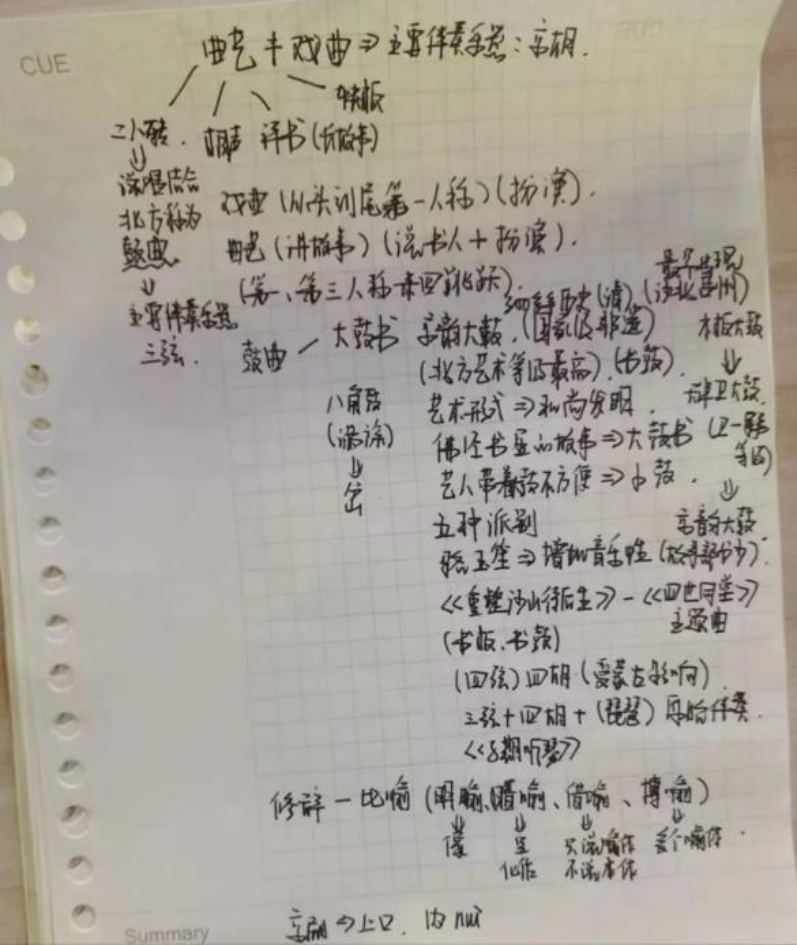 CUE
曲艺+戏曲⇒主要伴奏乐器:京胡.
快板
二人转. 相声 评书(长故事)
⇓
说唱结合
北方称为
鼓曲.
⇓
主要伴奏乐器
三弦.
戏曲(从头到尾第一人称)(扮演).
曲艺(讲故事)(说书人+扮演).
(第一、第三人称来回跳跃).
鼓曲 — 大鼓书 京韵大鼓.(国家级非遗)
历史(清).
(北方艺术等级最高).(书鼓).
八角鼓
⇓
艺术形式⇒和尚发明.
佛经书里的故事⇒大鼓书
艺人带着鼓不方便⇒小鼓.
五种派别
骆玉笙⇒增加音乐性
《重整河山待后生》-《四世同堂》
主题曲
(书板、书鼓)
(四弦)四胡(受蒙古影响)
三弦+四胡+(琵琶)原始伴奏.
《子期听琴》
最早出现
木板大鼓
⇓
⇓
京韵大鼓
修辞 — 比喻(明喻、暗喻、借喻、博喻)
⇓ ⇓ ⇓ ⇓
像 是 只说喻体 多个喻体.
不说本体
京剧⇒上口. 内nuì
Summary